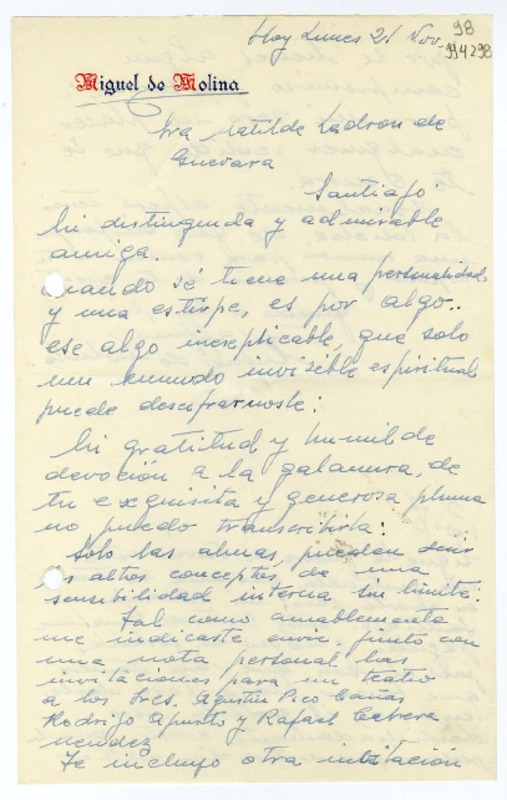 Hoy Lunes 21 Nov.
98
994298
Miguel de Molina
Sra Matilde Ladron de
Guevara
Santiago
Mi distinguida y admirable
amiga.
uando sé tiene una personalidad
y una estirpe, es por algo..
ese algo inexplicable, que solo
un mundo invisible espiritual
puede descifrarnosle:
Mi gratitud y humilde
devoción a la galanura, de
tu exquisita y generosa pluma
no puedo transcribirla:
Solo las almas, pueden
s altos conceptos de una
sensibilidad interna sin limite:
Tal como amablemente
me indicaste envie, junto con
una nota personal las
invitaciones para un teatro
a los Sres. Agustin Pico Cañas
Rodrigo Aburto y Rafael Cabrera
Mendez
Te incluyo otra invitación